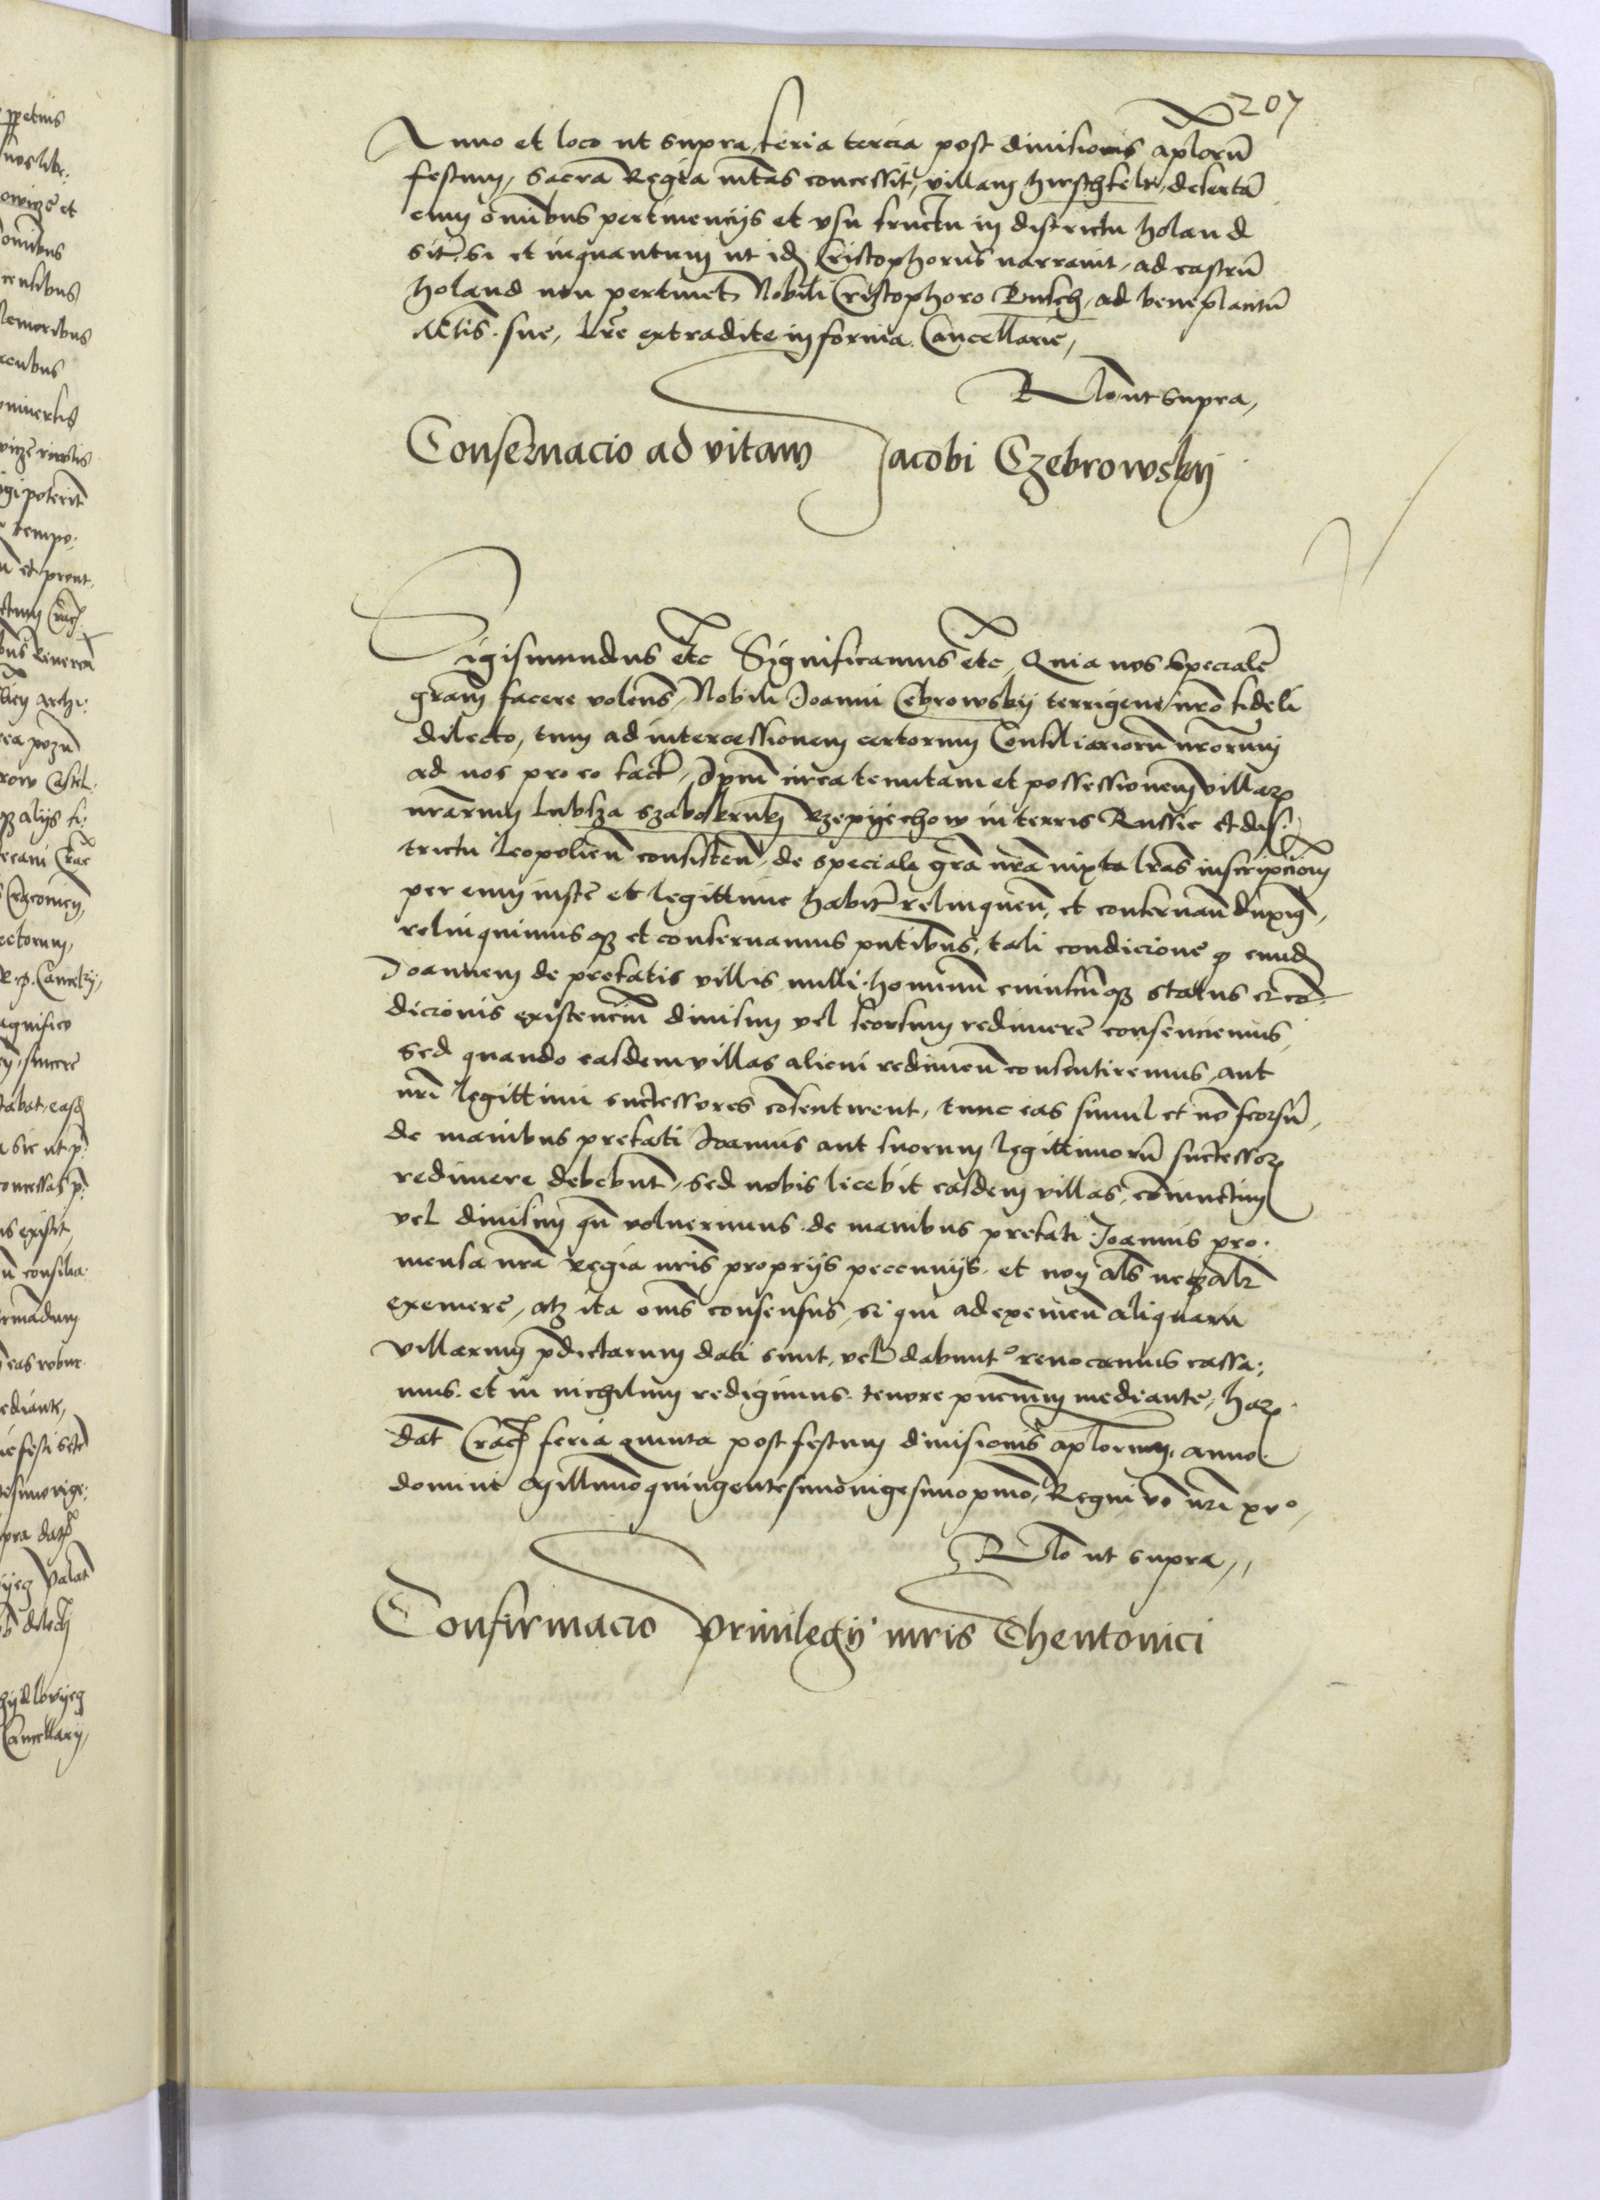 207
Anno et loco ut supra, feria tercia post divisionis aplorũ
festum, Sacra Regia mtas concessit, villam hirschfelt, desertã
cum omibus pertinencijs et usu fructu in districtu holand
sitã, si et inquantum ut idẽ Cristophorus narravit, ad castrũ
holand non pertinet, Nobili Cristophoro Busch, ad beneplacitũ
Mtis sue, lre extradite in forma Cancellarie,
Rlo ut supra,
Conservacio ad vitam Jacobi Czebrowskij
Sigismundus etc Significamus etc, Quia nos specialẽ
gram facere volens, Nobili Joanni Cebrowskij terrigene, nro fideli
dilecto, tum ad intercessionem certorum Consiliariorũ nrorum
ad nos pro eo fact, Ipm circa tenutam et possessionem villarꝝ
nrarum lubsza szabokruki Rzepyechow in terris Russie et dis-
trictu Leopolien consisten, de speciali gra nra iuxta lras inscripcionũ
per eum iuste et legittime habit relinquen, et conservan duxiꝰ,
relinquimusqꝫ et conservamus pntibus, tali condicione ꝙ eundẽ
Joannem de prefatis villis nulli hominũ cuiuscũqꝫ status et con-
dicionis existenciũ divisim vel seorsum redimere consenciemus,
sed quando easdem villas alicui redimen consentiremus, aut
nri legittimi successores consentirent, tunc eas simul et nõ seorsũ,
de manibus prefati Joannis aut suorum legittimorũ successorꝝ
redimere debebunt, sed nobis licebit easdem villas, coniunctim
vel divisim qñ voluerimus de manibus prefati Joannis pro
mensa nra Regia nris proprijs pecunijs et non als neqꝫ alr
exemere, atqꝫ ita oms consensus, si qui ad exemen aliquarũ
villarum pdictarum dati sunt, vel dabunt, revocamus cassa-
mus et in nichilum redigimus tenore pncium mediante, harꝝ
dat Crac feria quinta post festum divisionis aplorum, anno
domini Millimo quingentesimo vigesimo pmo, Regni vo nri xvo,
Rlo ut supra,,
Confirmacio privilegij iuris Theutonici